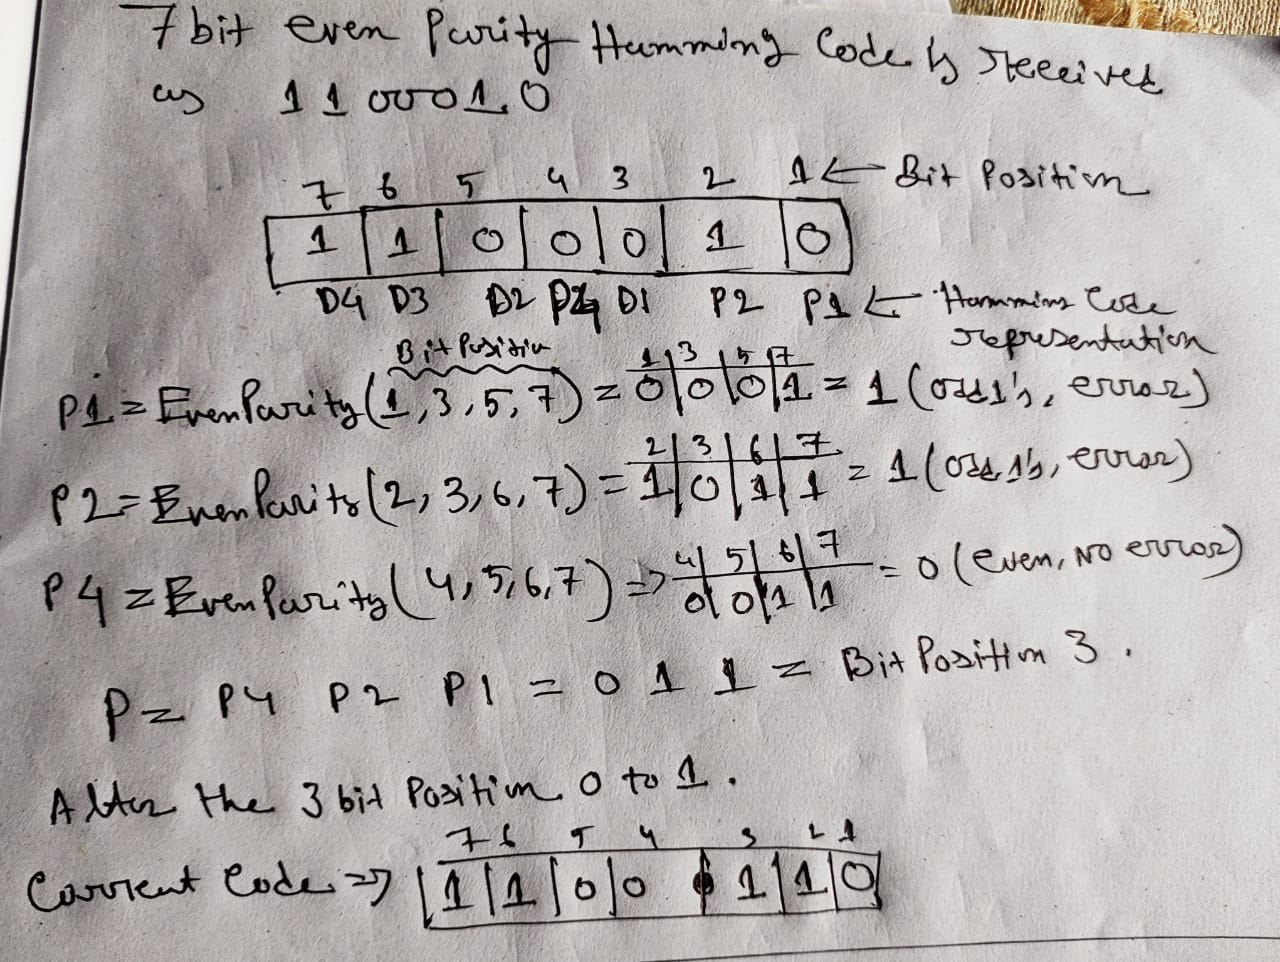 7 bit even Parity Hamming Code is received
as 1100010
7 6 5 4 3 2 1 ← Bit Position
1 | 1 | 0 | 0 | 0 | 1 | 0
D4 D3 D2 P4 D1 P2 P1 ← Hamming Code
representation
Bit Position
1 | 3 | 5 | 7
P1 = Even Parity (1,3,5,7) = 0 | 0 | 0 | 1 = 1 (odd 1's, error)
2 | 3 | 6 | 7
P2 = Even Parity (2,3,6,7) = 1 | 0 | 1 | 1 = 1 (odd 1's, error)
4 | 5 | 6 | 7
P4 = Even Parity (4,5,6,7) => 0 | 0 | 1 | 1 = 0 (even, NO error)
P = P4 P2 P1 = 0 1 1 = Bit Position 3.
Alter the 3 bit Position 0 to 1.
7 6 5 4 3 2 1
Correct Code => 1 | 1 | 0 | 0 | 1 | 1 | 0